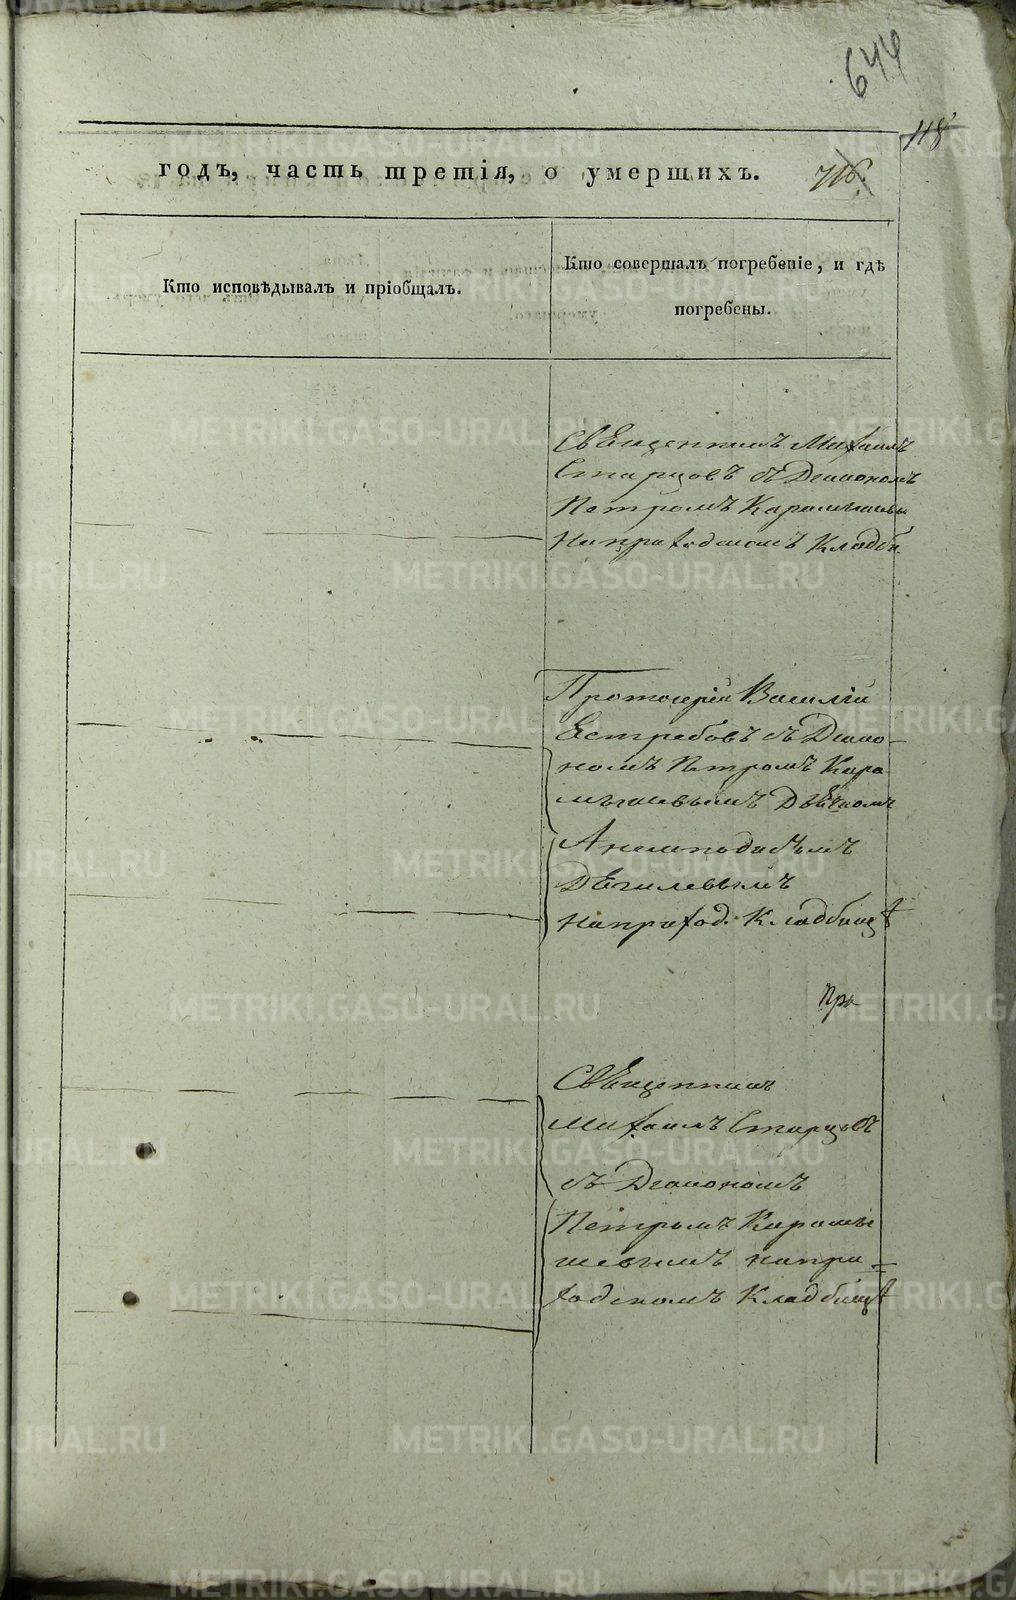 644
118
годъ, часть третія, о умершихъ.
716.
Кто исповѣдывалъ и пріобщалъ.
Кто совершалъ погребеніе, и гдѣ
погребены.
Священникъ Михаилъ
Старцовъ съ Діакономъ
Петромъ Карамышевы
На приходскомъ Кладби
Протоіерей Василій
Ястребовъ съ Діако-
номъ Петромъ Кара
мышевымъ Дьячкомъ
Дягилевымъ
На приход. Кладбищѣ
Пр
Священникъ
Михаилъ Старцовъ
съ Діакономъ
Петромъ Карамы
шевымъ на при-
ходскомъ Кладбищѣ
METRIKI.GASO-URAL.RU